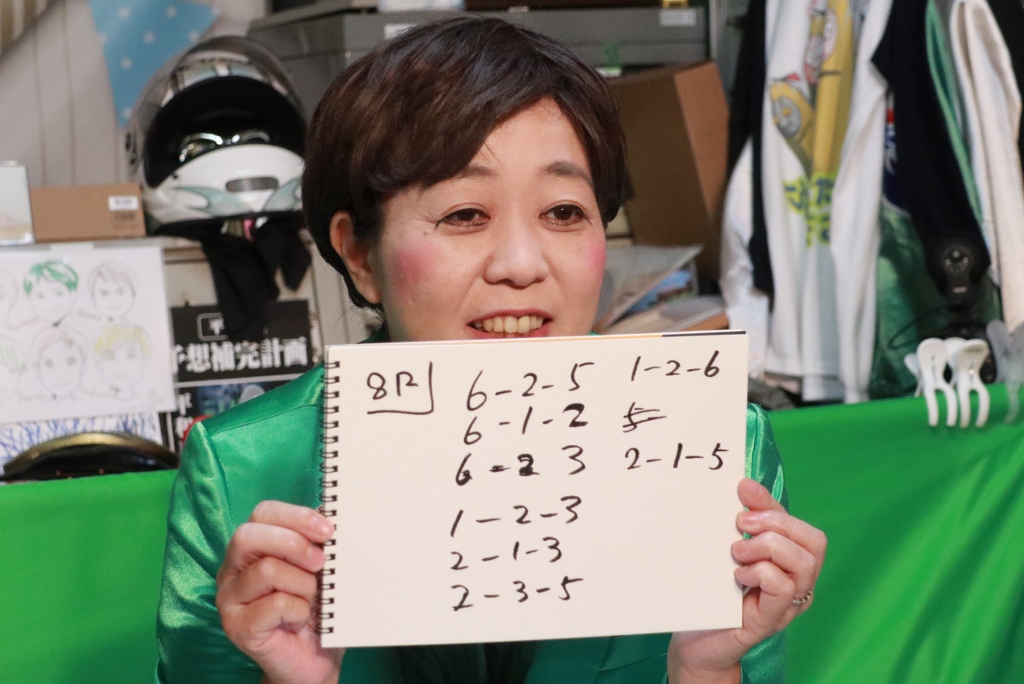 8R
6-2-5
6-1-2
6-2 3
1-2-3
2-1-3
2-3-5
1-2-6
2-1-5
予想補完計画